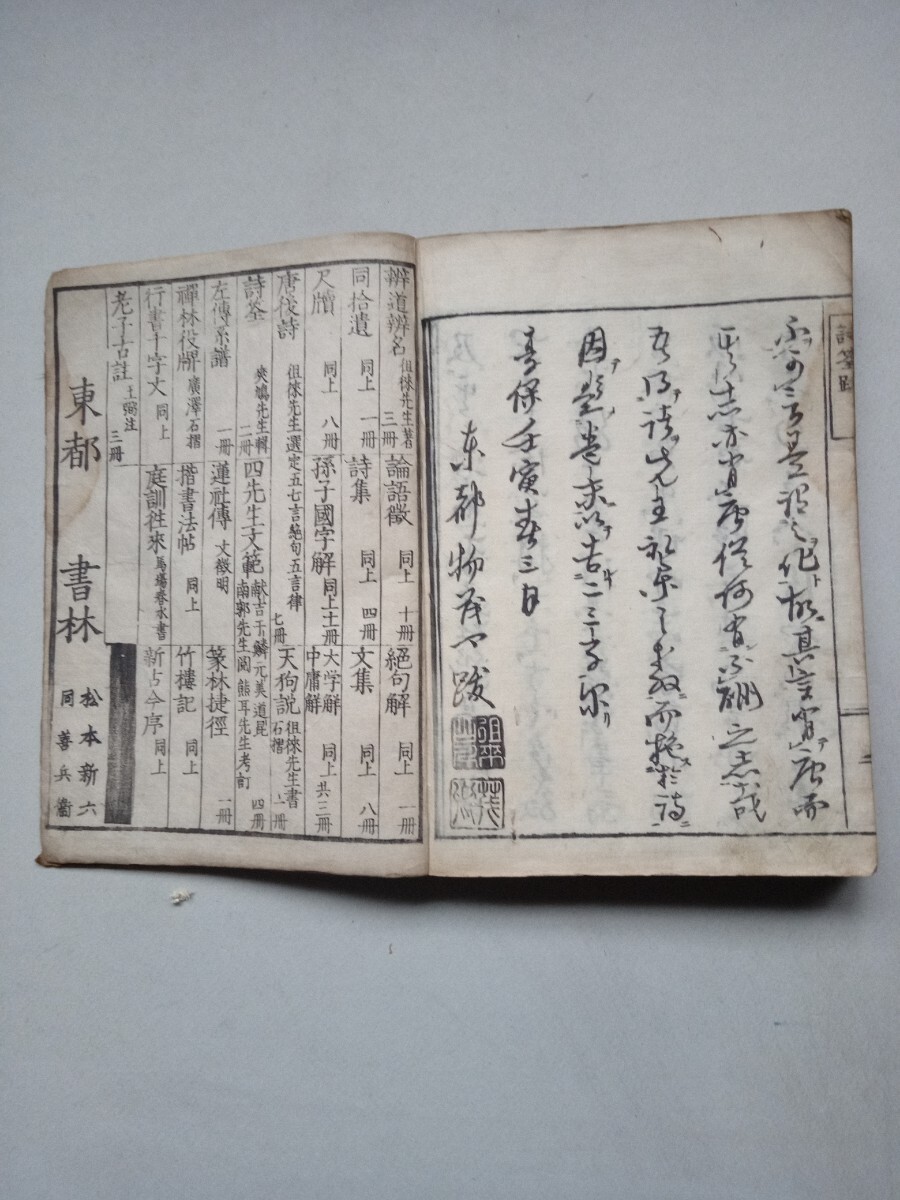 詩筌跋
其言肖唐而
其志亦肖唐從何肖不酬之志哉
而趣於詩
因題卷末以吉二三子尔
享保壬寅春三月
東都物茂卿跋
辨道辨名 徂徠先生著 三冊
論語徵 同上 十冊
絕句解 同上 一冊
同拾遺 同上 一冊
詩集 同上 四冊
文集 同上 八冊
尺牘 同上 八冊
孫子國字解 同上 十三冊
大学解 中庸解 同上 共三冊
唐後詩 徂徠先生選定五七言絶句五言律 七冊
天狗説 徂徠先生書 石摺 一冊
詩筌 爽鳩先生輯 二冊
四先生文範 献吉于鱗元美道昆 南郭先生閲 熊耳先生考訂 四冊
左傳系譜 一冊
蓮社傳 文徴明
篆林捷徑 一冊
禪林役牌 廣澤石摺
楷書法帖 同上
竹樓記 同上
行書千字文 同上
庭訓往來 馬場春水書
新古今序 同上
老子古註 王弼注 三冊
東都 書林
松本新六
同善兵衞